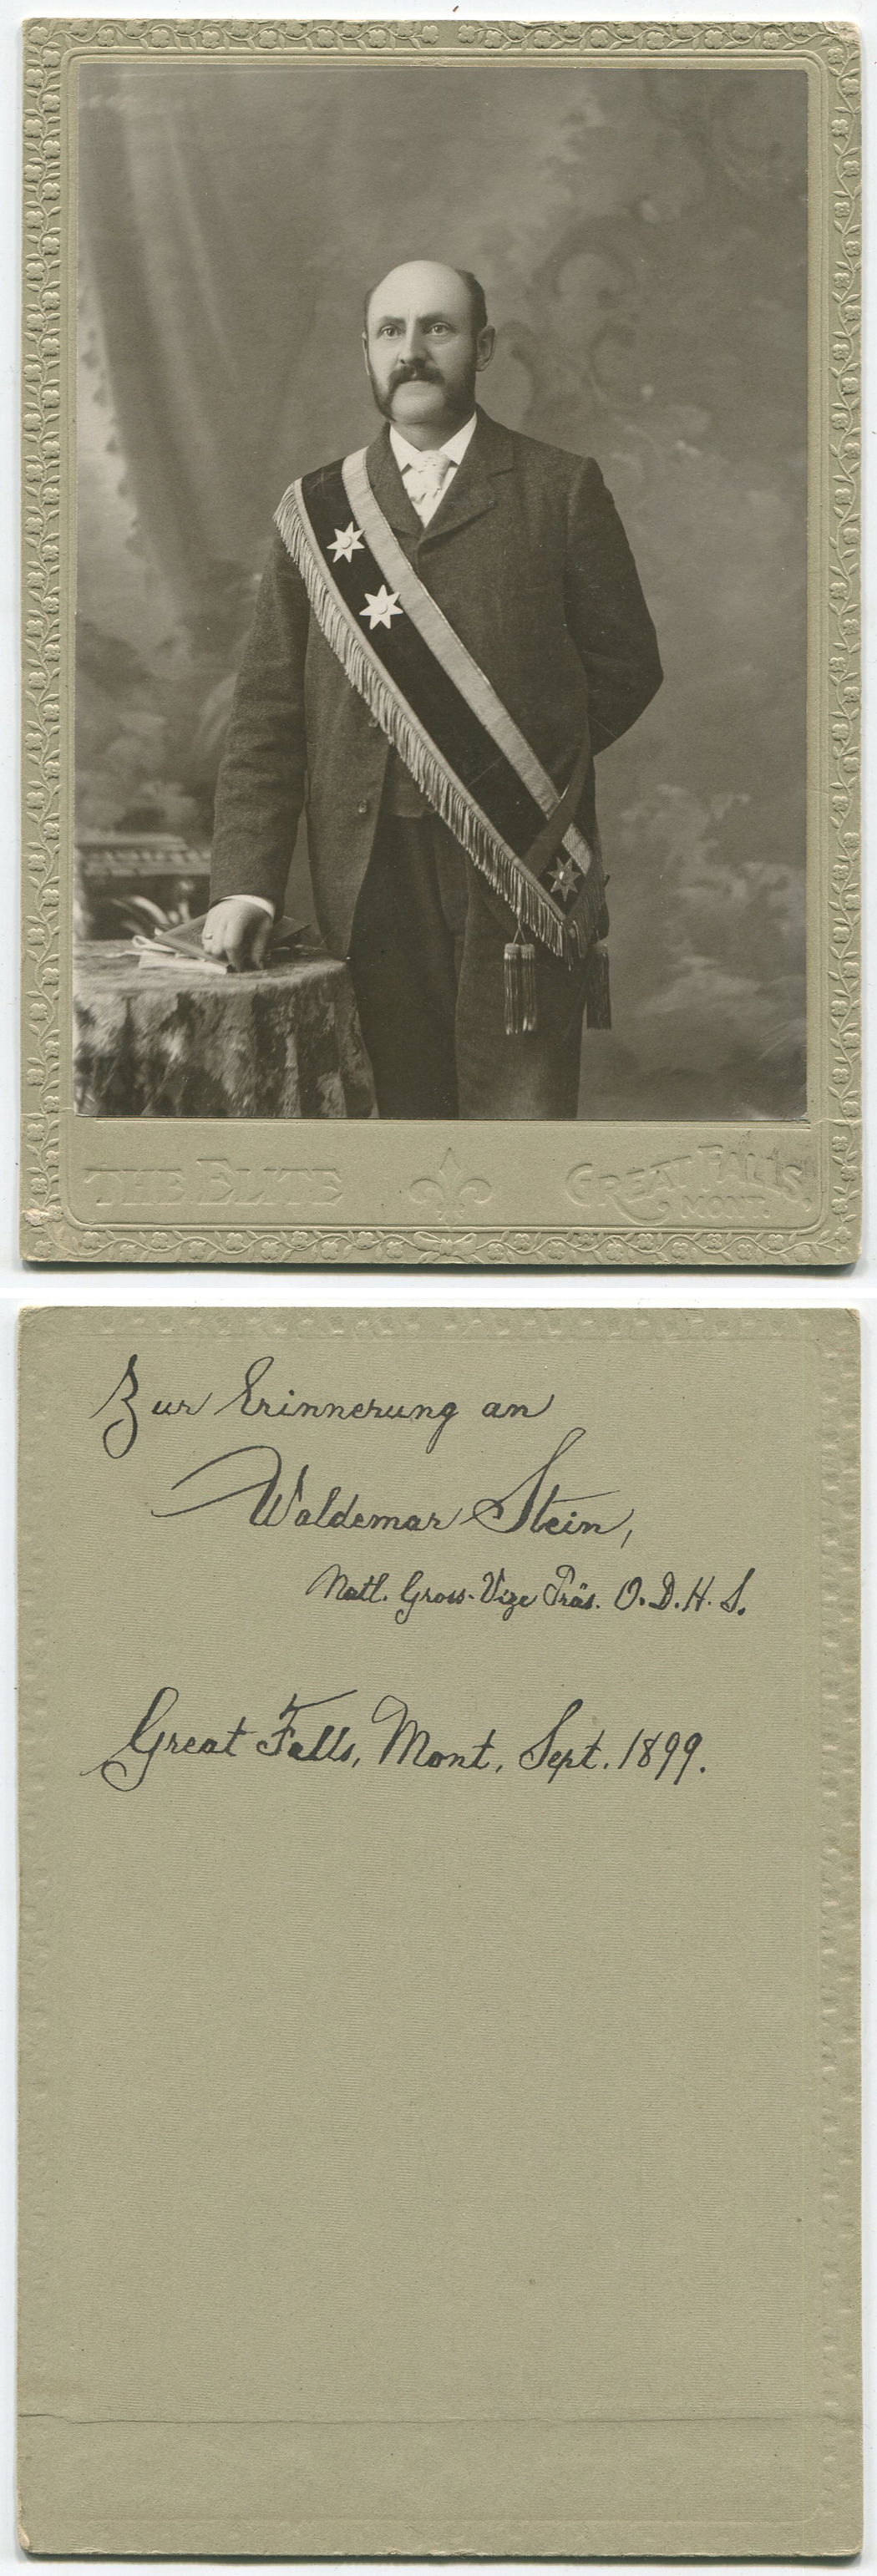 THE ELITE
GREAT FALLS,
MONT.
Zur Erinnerung an
Waldemar Stein,
Natl. Gross-Vize Präs. O.D.H.S.
Great Falls, Mont, Sept. 1899.